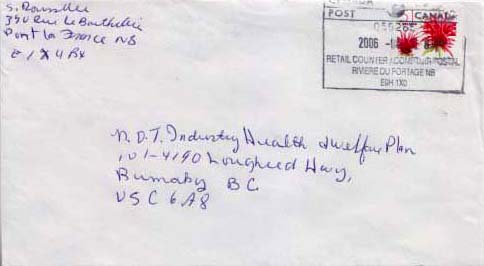 S. Rousselle
350 Rue
Pont La France NB
E1X 4B4
POST CANADA
056262
2006
RETAIL COUNTER / COMPTOIR POSTAL
RIVIERE DU PORTAGE NB
E9H 1X0
N.D.T. Industry Health & Welfare Plan
101-4190 Lougheed Hwy,
Burnaby BC
V5C 6A8